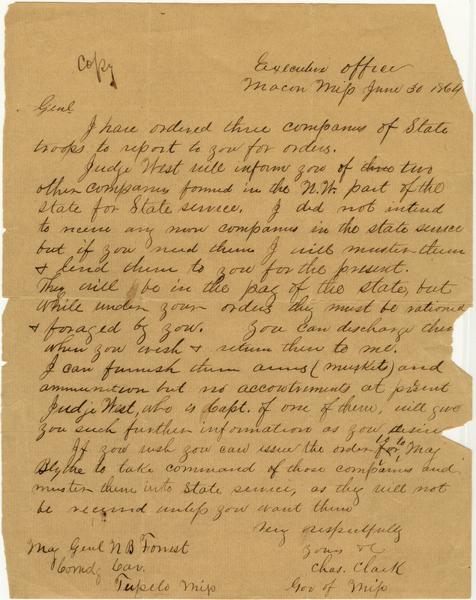 Copy
Executive Office
Macon Miſs June 30 1864
Genl
I have ordered three companies of State
troops to report to you for orders.
Judge West will inform you of three two
other companies formed in the N.W. part of the
state for State service. I did not intend
to receive any more companies in the state service
but if you need them I will muster them
& lend them to you for the present.
They will be in the pay of the state, but
while under your orders they must be rationed
& foraged by you. You can discharge them
when you wish & return them to me.
I can furnish them arms (muskets) and
ammunition but no accoutrements at present
Judge West, who is Capt. of one of them, will give
you such further information as you desire
If you wish you can issue the order for to Maj
Blythe to take command of those companies and
muster them into State service, as they will not
be received unleſs you want them
Very respectfully
Yours &c
Chas. Clark
Gov of Miſs
Maj Genl N B Forrest
Comdg Cav.
Tupelo Miſs